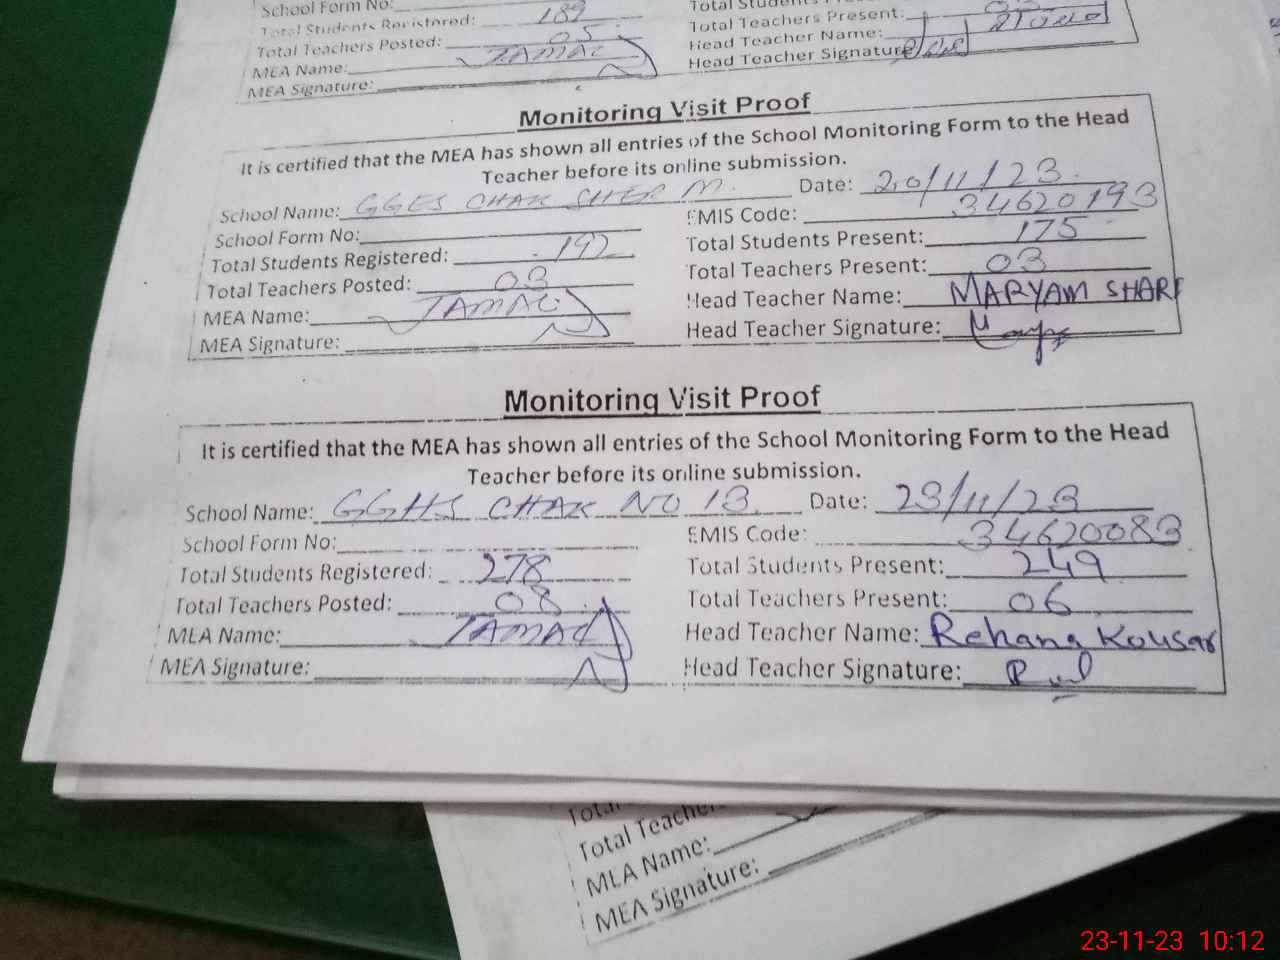 School Form No:
Total Students Registered: 189
Total Teachers Present:
Total Teachers Posted: 05
Head Teacher Name:
MEA Name: JAMAL
Head Teacher Signature:
MEA Signature:
Monitoring Visit Proof
It is certified that the MEA has shown all entries of the School Monitoring Form to the Head
Teacher before its online submission.
School Name: GGES CHAK SHER M. Date: 20/11/23
EMIS Code: 34620193
School Form No:
Total Students Registered: 192 Total Students Present: 175
Total Teachers Posted: 03 Total Teachers Present: 03
MEA Name: JAMAL Head Teacher Name: MARYAM SHARF
MEA Signature: Head Teacher Signature:
Monitoring Visit Proof
It is certified that the MEA has shown all entries of the School Monitoring Form to the Head
Teacher before its online submission.
School Name: GGHS CHAK NO 13. Date: 23/11/23
School Form No: EMIS Code: 34620083
Total Students Registered: 278 Total Students Present: 249
Total Teachers Posted: 08 Total Teachers Present: 06
MEA Name: JAMAL Head Teacher Name: Rehana Kousar
MEA Signature: Head Teacher Signature:
Total Teacher
MEA Name:
MEA Signature:
23-11-23 10:12